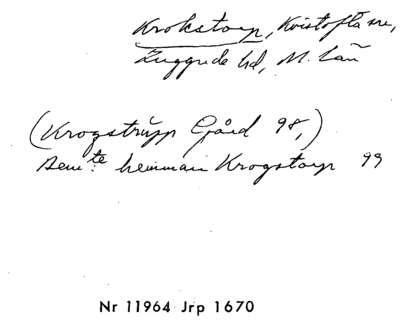 Krokstorp, Kvistofta sn,
Luggude hd, M. län
(Krogstrŭpp Gård 98,)
Sem:te hemman Krogstorp 99
Nr 11964 Jrp 1670